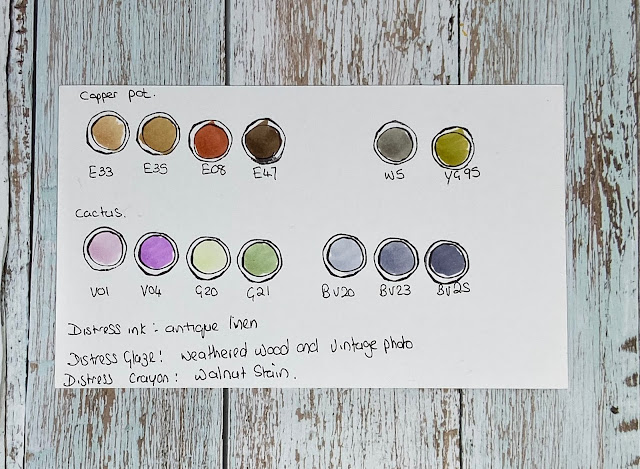 Copper pot.
E33 E35 E08 E47 W5 YG95
Cactus.
V01 V04 G20 G21 BV20 BV23 BV25
Distress ink: antique linen
Distress Glaze! weathered wood and vintage photo
Distress Crayon: Walnut Stain.